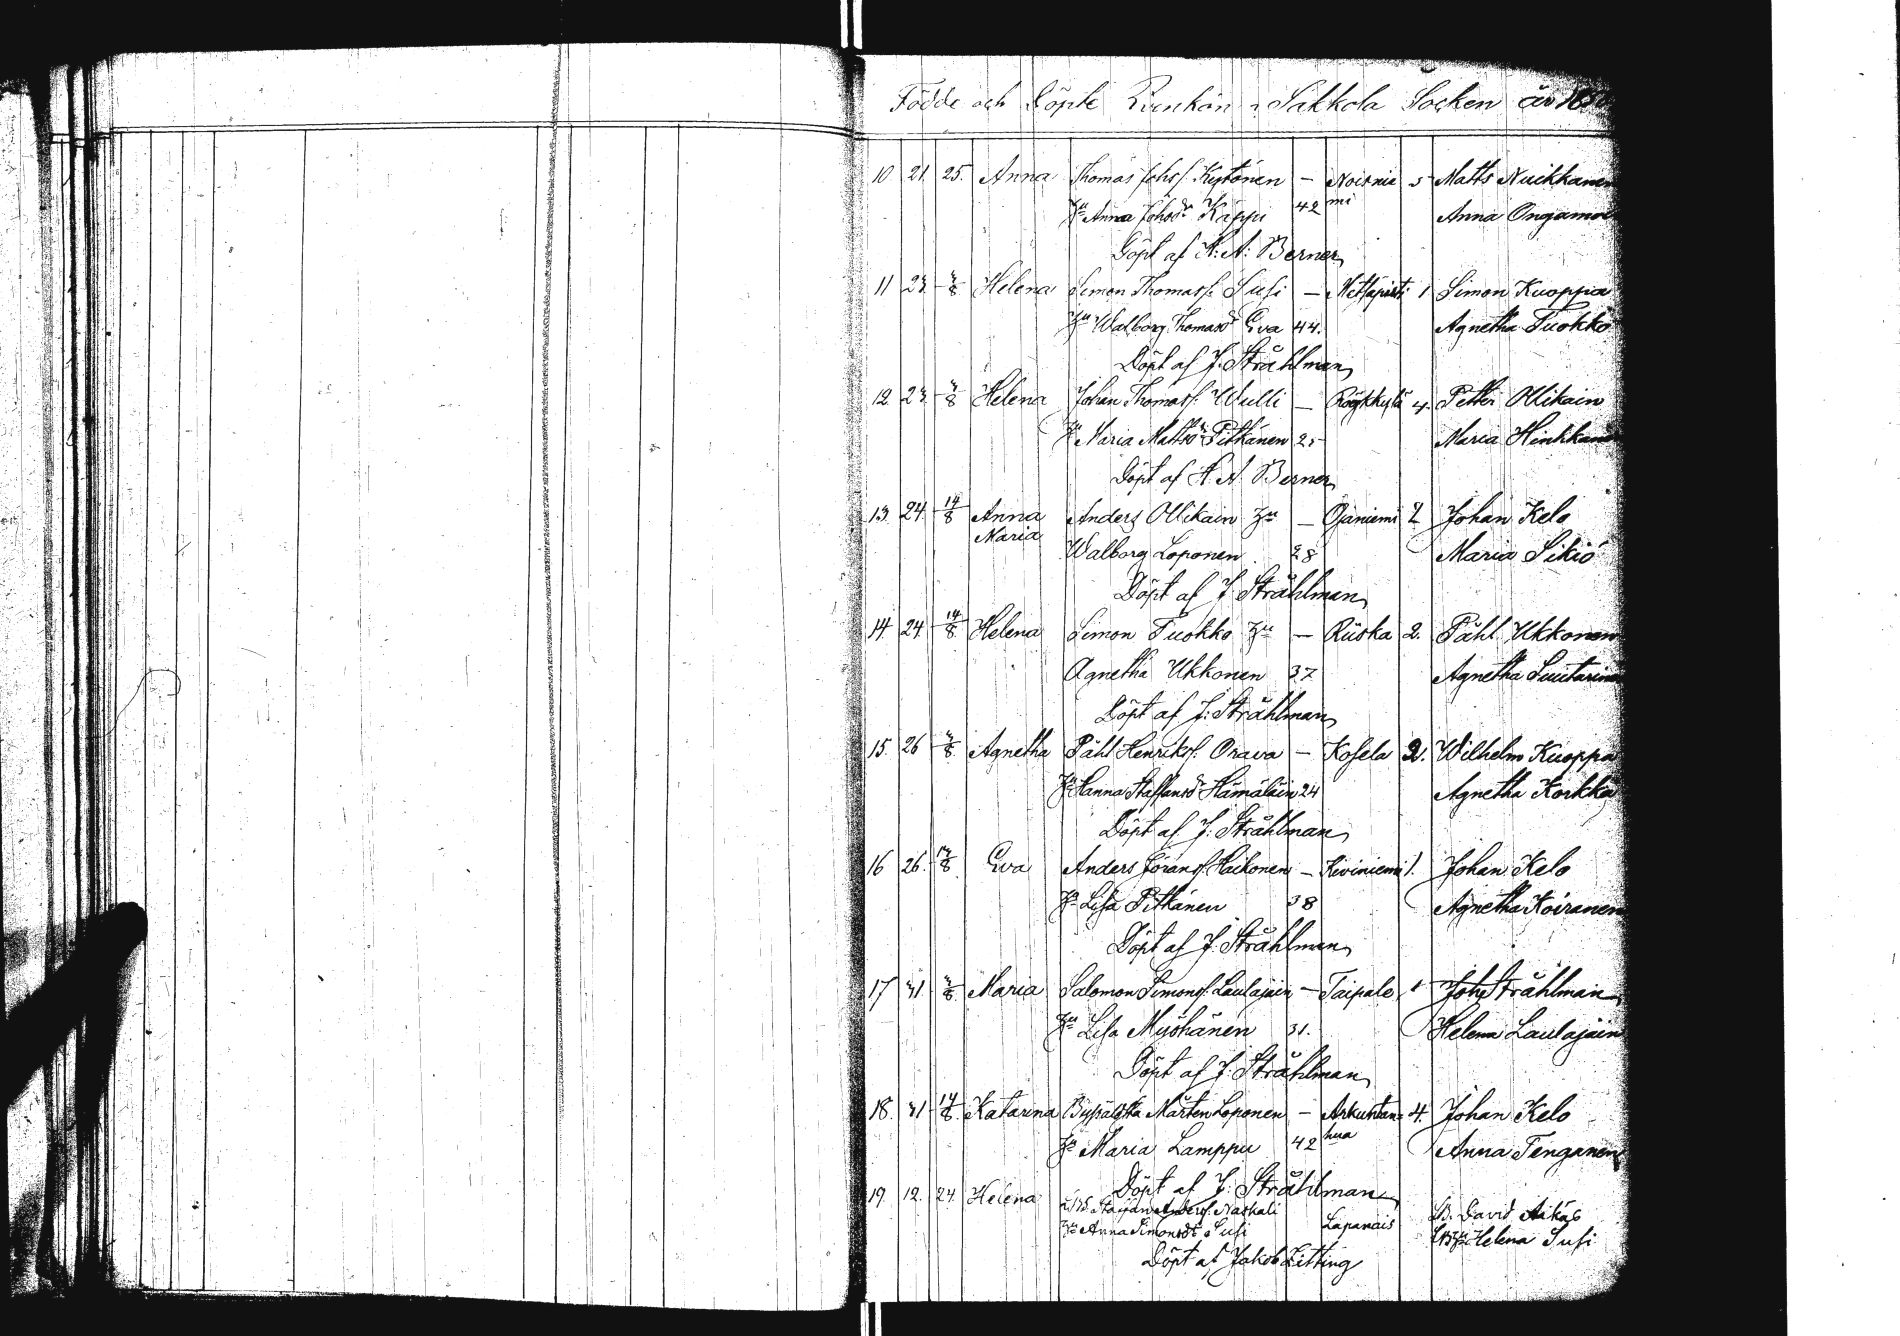 Födde och Döpte Qvinkön i Sakkola Socken år
10 21. 25. Anna Thomas Johs. Kytönen — Noisnie 5 Matts Nuikkanen
Hu Anna Johsdr Käppi 42 mi Anna Ongamo
Döpt af K. A. Berner
11 23. 3/8 Helena Simon Thomass. Susi — Metsäpirti 1 Simon Kuoppa
Hu Walborg Thomasdr Eva 44. Agnetha Tuokko
Döpt af J. Stråhlman
12. 23. 3/8 Helena Johan Thomass. Wulli — Röykkylä 4. Petter Ollikain
Hu Maria Mattsdr Pitkänen 25 Maria Hinkkanen
Döpt af K. A. Berner
13. 24. 14/8 Anna Anders Ollikain Hu — Ojaniemi 2 Johan Kelo
Maria Walborg Loponen 28 Maria Sikiö
Döpt af J. Stråhlman
14. 24. 14/8 Helena Simon Tuokko Hu — Riiska 2. Påhl Ukkonen
Agnetha Ukkonen 37 Agnetha Suutarinen
Döpt af J. Stråhlman
15. 26 3/8 Agnetha Påhl Henrikss. Orava — Kosela 2. Wilhelm Kuoppa
Hu Hanna Staffansdr Hämäläin 24 Agnetha Korkka
Döpt af J. Stråhlman
16 26. 8 Eva Anders Jöranss. Haikonen — Kiviniemi 1. Johan Kelo
Hu Lisa Pitkänen 38 Agnetha Koiranen
Döpt af J. Stråhlman
17 31. 3/8 Maria Salomon Simonss. Laulajain — Taipale 1 Joh. Stråhlman
Hu Lisa Myöhänen 31. Helena Laulajain
Döpt af J. Stråhlman
18. 31 14/8 Katarina Mårten Loponen — Arkuntan= 4. Johan Kelo
Hu Maria Lamppu 42 hua Anna Tenganen
Döpt af J. Stråhlman
19. 12. 24. Helena Staffan Anderss. Naskali Lapanais David Aikäs
Hu Anna Simonsdr Susi Helena Susi
Döpt af Jakob Zitting